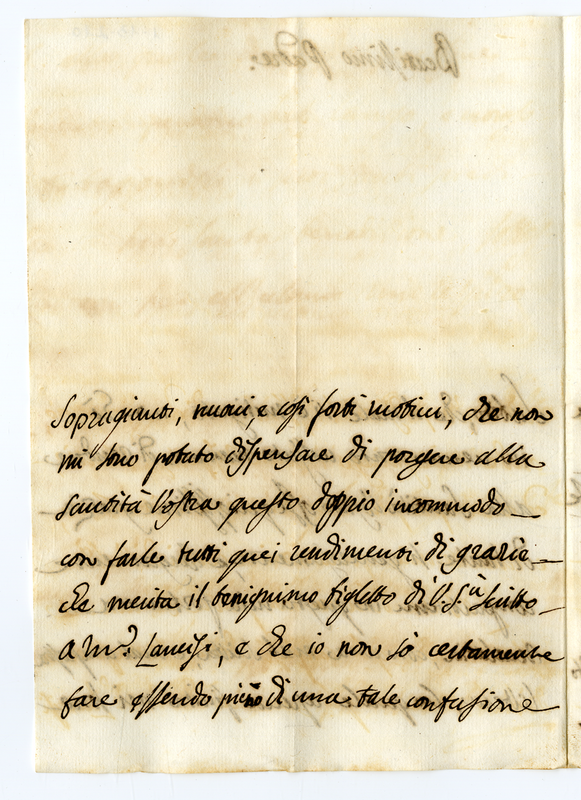 Sopragiunti, nuovi, e così forti motivi, che non
mi sono potuto dispensare di porgere alla
Santità Vostra questo doppio incommodo
con farle tutti quei rendimenti di grazie
che merita il benignissimo biglietto di V. S.tà scritto
a Mr. Lancisi, e che io non sò certamente
fare essendo pieno di una tale confusione